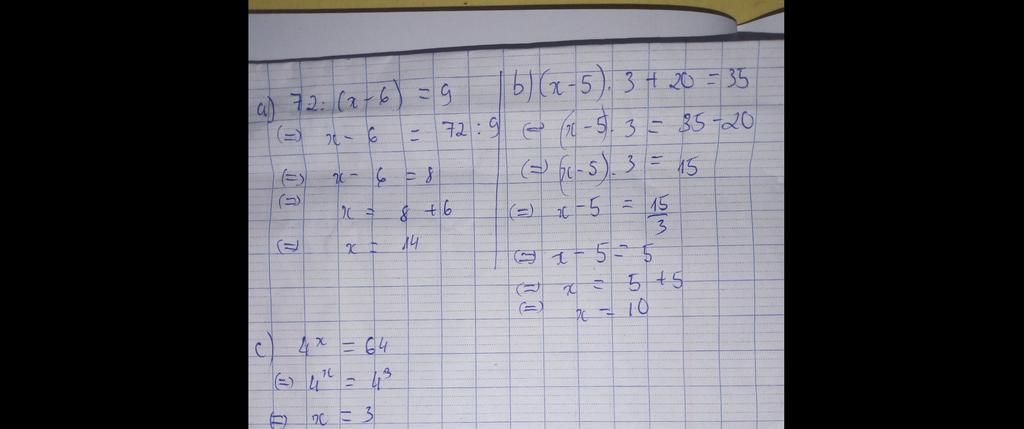 a) 72 : (x - 6) = 9
(=) x - 6 = 72 : 9
(=) x - 6 = 8
(=) x = 8 + 6
(=) x = 14
b) (x - 5) . 3 + 20 = 35
(=) (x - 5) . 3 = 35 - 20
(=) (x - 5) . 3 = 15
(=) x - 5 = 15/3
(=) x - 5 = 5
(=) x = 5 + 5
(=) x = 10
c) 4^x = 64
(=) 4^x = 4^3
(=) x = 3